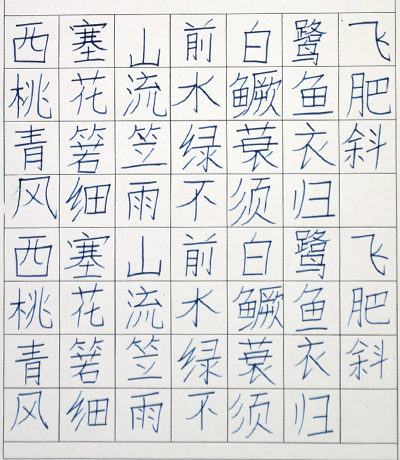 西塞山前白鹭飞
桃花流水鳜鱼肥
青箬笠绿蓑衣斜
风细雨不须归
西塞山前白鹭飞
桃花流水鳜鱼肥
青箬笠绿蓑衣斜
风细雨不须归